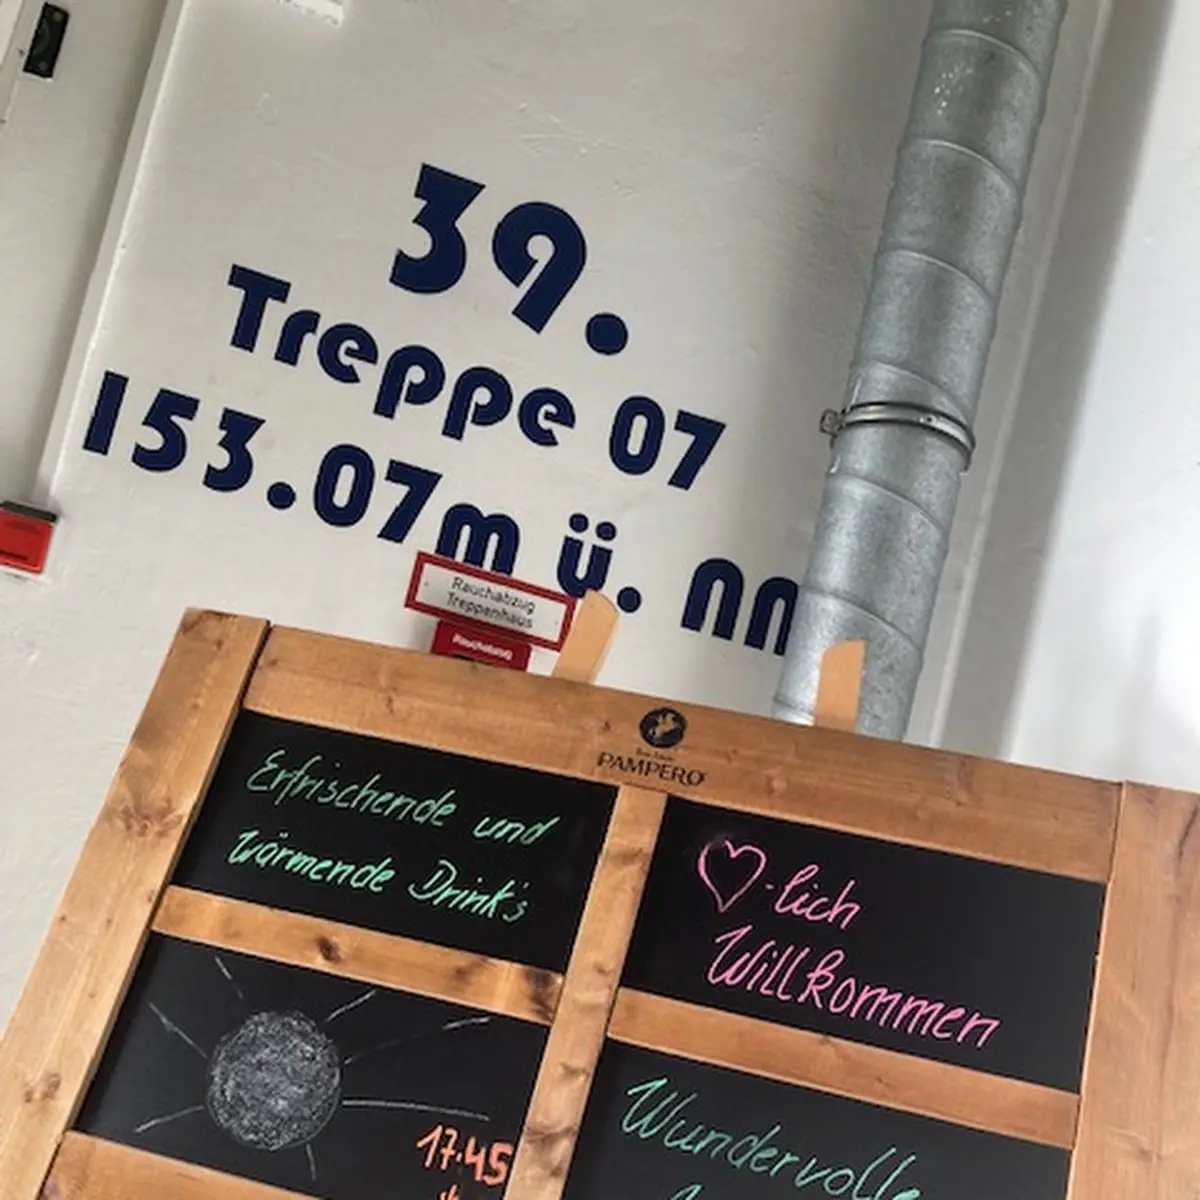 39.
Treppe 07
153.07m ü. nn
Rauchabzug
Treppenhaus
Rauchabzug
PAMPERO
Erfrischende und
wärmende Drink's
♡-lich
Willkommen
17.45
Wundervolle